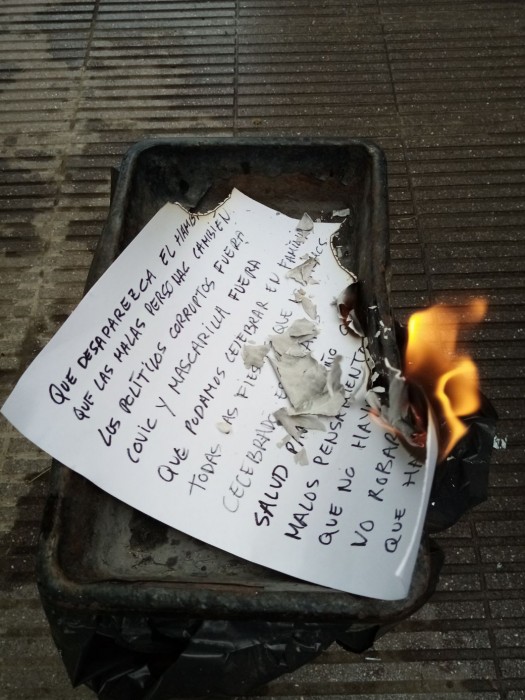 QUE DESAPAREZCA EL HAMB
QUE LAS MALAS PERSONAS CAMBIEN
LOS POLÍTICOS CORRUPTOS FUERA
COVIC Y MASCARILLA FUERA
QUE PODAMOS CELEBRAR EN FAMILIA
TODAS LAS FIES QUE
CECEBRADO
SALUD PA
MALOS PENSAMIENTO
QUE NO HAY
NO ROBAR
QUE HA